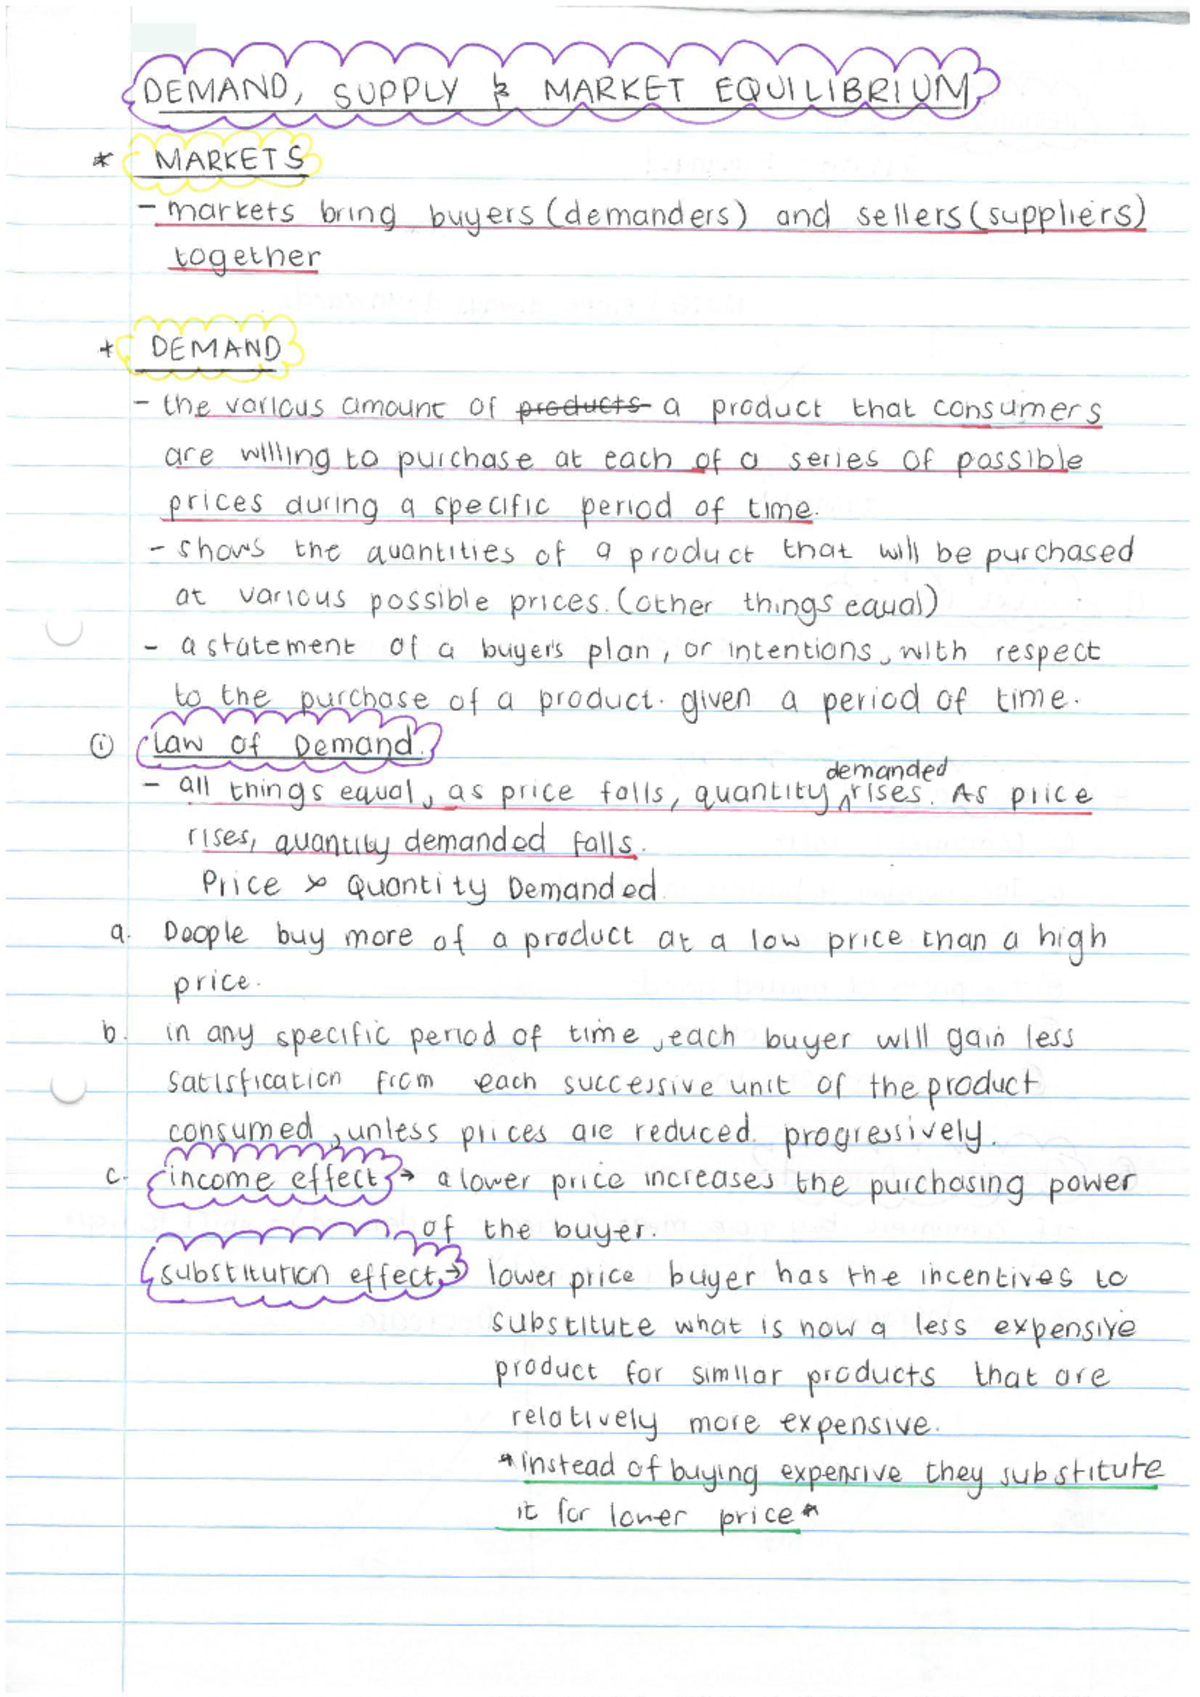 DEMAND, SUPPLY & MARKET EQUILIBRIUM
* MARKETS
- markets bring buyers (demanders) and sellers (suppliers)
together
* DEMAND
- the various amount of products a product that consumers
are willing to purchase at each of a series of possible
prices during a specific period of time.
- shows the quantities of a product that will be purchased
at various possible prices. (other things equal)
- a statement of a buyer's plan, or intentions, with respect
to the purchase of a product. given a period of time.
① Law of Demand.
- all things equal, as price falls, quantity demanded rises. As price
rises, quantity demanded falls.
Price ∝ Quantity Demanded
a. People buy more of a product at a low price than a high
price.
b. in any specific period of time, each buyer will gain less
satisfication from each successive unit of the product
consumed, unless prices are reduced progressively.
c. income effect → a lower price increases the purchasing power
of the buyer.
substitution effect → lower price buyer has the incentives to
substitute what is now a less expensive
product for similar products that are
relatively more expensive.
*instead of buying expensive they substitute
it for lower price*